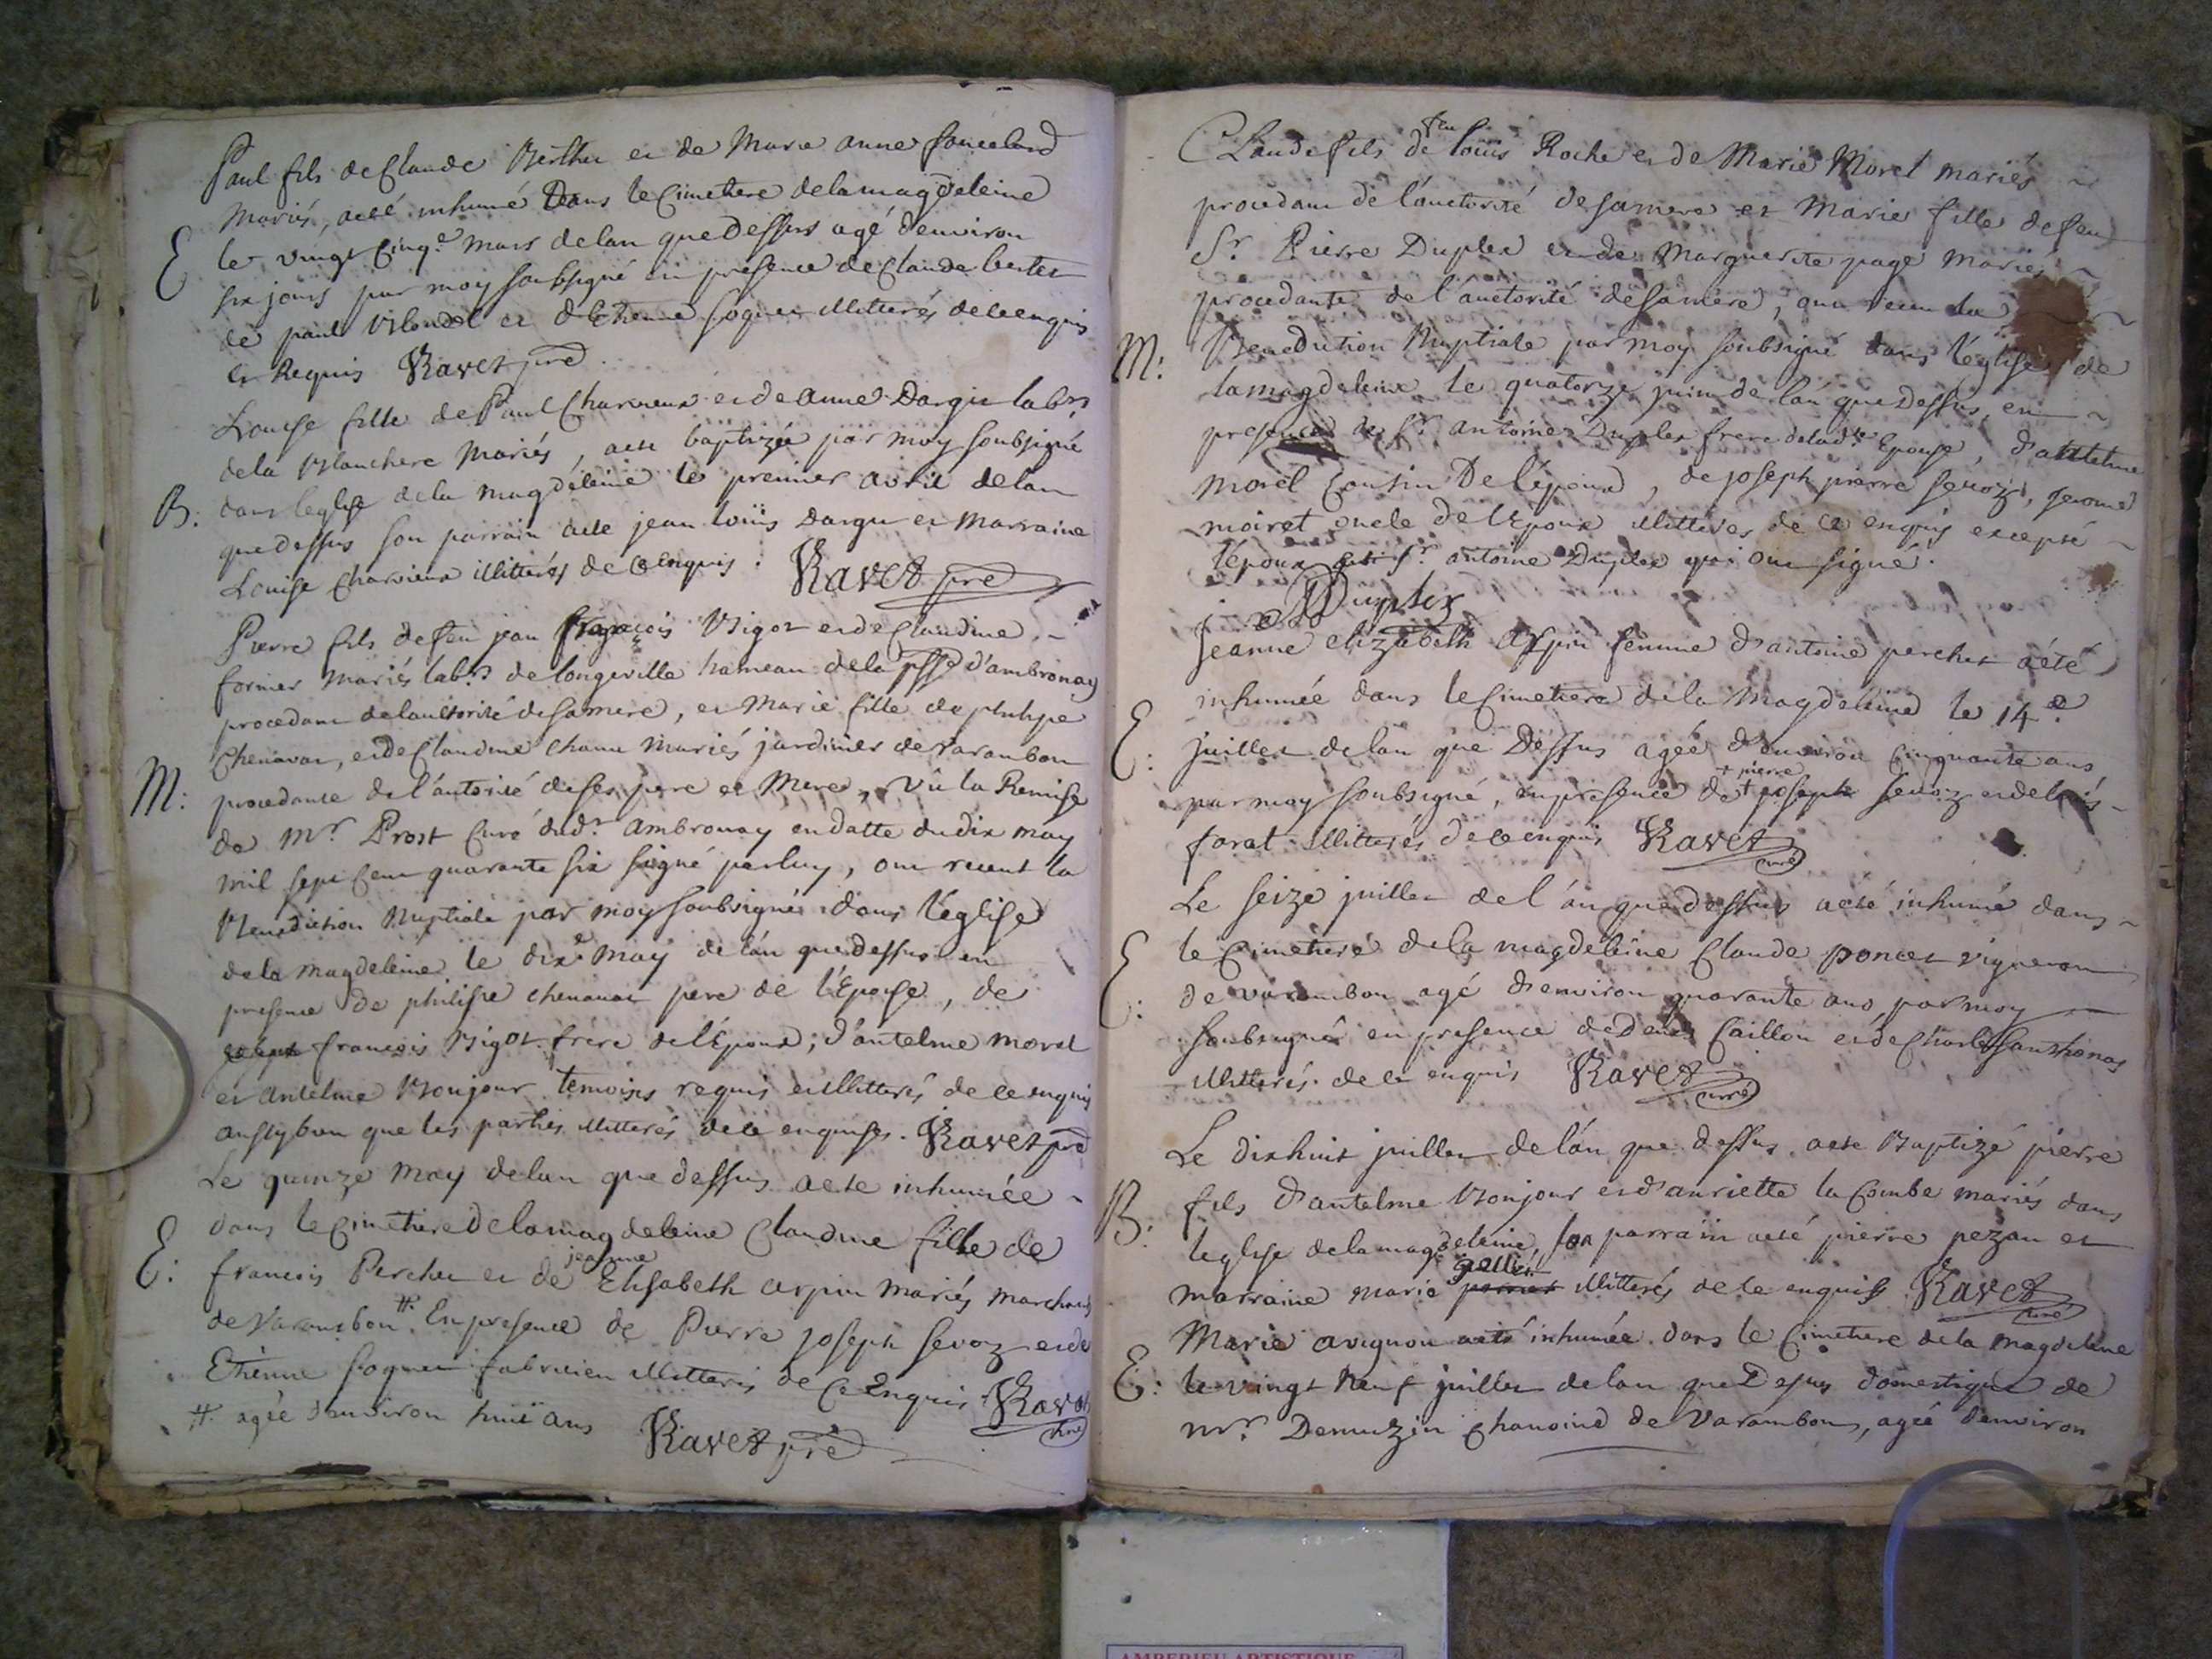 Paul fils de Claude Berthet et de Marie anne
Mariés, a eté inhumé Dans le Cimetiere delamagdeleine
E le vingt Cinq.e Mars delan quedessus agé denviron
six jours par moy soubsigné en presence de Claude bertet
de paul Blondel et detienne foquer illitterés deleenquis
et Requis Ravet pre
Louise fille de Paul Charveux et de anne Dargit lab.rs
dela Blanchere Mariés, aete baptizée par moy soubsigné
B: dans leglise dela magdeleine le premier avril delan
quedessus son parrain aete jean loüis Dargit et Marraine
Louise charvieux illitterés de ce enquis. Ravet pre
Pierre fils defeu jean françois Bigot et de Claudine
former mariés lab.rs de longeville hameau dela psse d'ambronay
procedant delauctorité desamere, et Marie fille de philipe
Chenavar, et de Claudine chanu mariés jardinier de varambon
M: procedante de l'autorité deses pere et Mere, vû la Remise
de Mr. Prost Curé dud.t ambronay endatte dudix may
mil sept Cent quarante six signé parluy, ont receut la
Benediction Nuptiale par moy soubsigné dans l'église
dela magdeleine le dix.e may de lan quedessus en
presence de philipe chenavar pere de l'Epouse, de
françois Bigot frere de l'Epoux; d'antelme morel
et antelme Bonjour temoins requis et illitterés de ce enquis
aussybien que les parties illitterés dece enquises. Ravet pre
Le quinze may delan que dessus aete inhumée
dans le Cimetiere delamagdeleine Claudine fille de
E: francois Percher et de jeanne Elisabeth arpin mariés marchands
de Varambon #. En presence de Pierre joseph sevoz et de
Etienne foquer fabricien illitterés de Ce Enquis Ravet curé
#. agée denviron huit ans Ravet pre
Claude fils de feu loüis Roche et de Marie Morel mariés
procedant de l'auctorité desamere et Marie fille defeu
Sr. Pierre Duplex et de Marguerite page mariés
procedante de l'auctorité desamere, ont receu la
M: Benediction Nuptiale par moy soubsigné dans l'église de
lamagdeleine le quatorze juin de lan que dessus, en
presence de Sr. antoine Duplex frere delad.te Epouse, d'antelme
morel Cousin De l'époux, de joseph pierre sevoz, jerome
moiret oncle de l'Epoux illitterés de ce enquis excepté
l'époux sr. antoine Duplex qui ont signé.
Duplex
jeanne elizabeth Arpin femme d'antoine percher aété
inhumée dans le Cimetiere de la Magdeleine le 14.e
E: juillet delan que Dessus agée d'environ Cinquante ans
par moy soubsigné, en presence de + pierre joseph sevoz et de
forat illitterés de ce enquis Ravet curé
Le seize juillet del'an que dessus aeté inhumé dans
E: le Cimetiere dela magdeleine Claude poncet vigneron
de varambon agé d'environ quarante ans, par moy
soubsigné en presence dedenis Caillon et de Charles
illitterés de ce enquis Ravet curé
Le dixhuit juillet de lan que dessus aete Baptizé pierre
B: fils d'antelme Bonjour et d'anriette la Combe mariés dans
leglise delamagdeleine, son parrain aeté pierre pezan et
marraine marie illitterés de ce enquis Ravet curé
Marie avignon aeté inhumée dans le Cimetiere de la magdeleine
E: le vingt neuf juillet delan que Desus domestique de
mr. Demuzin chanoine de Varambon, agée denviron